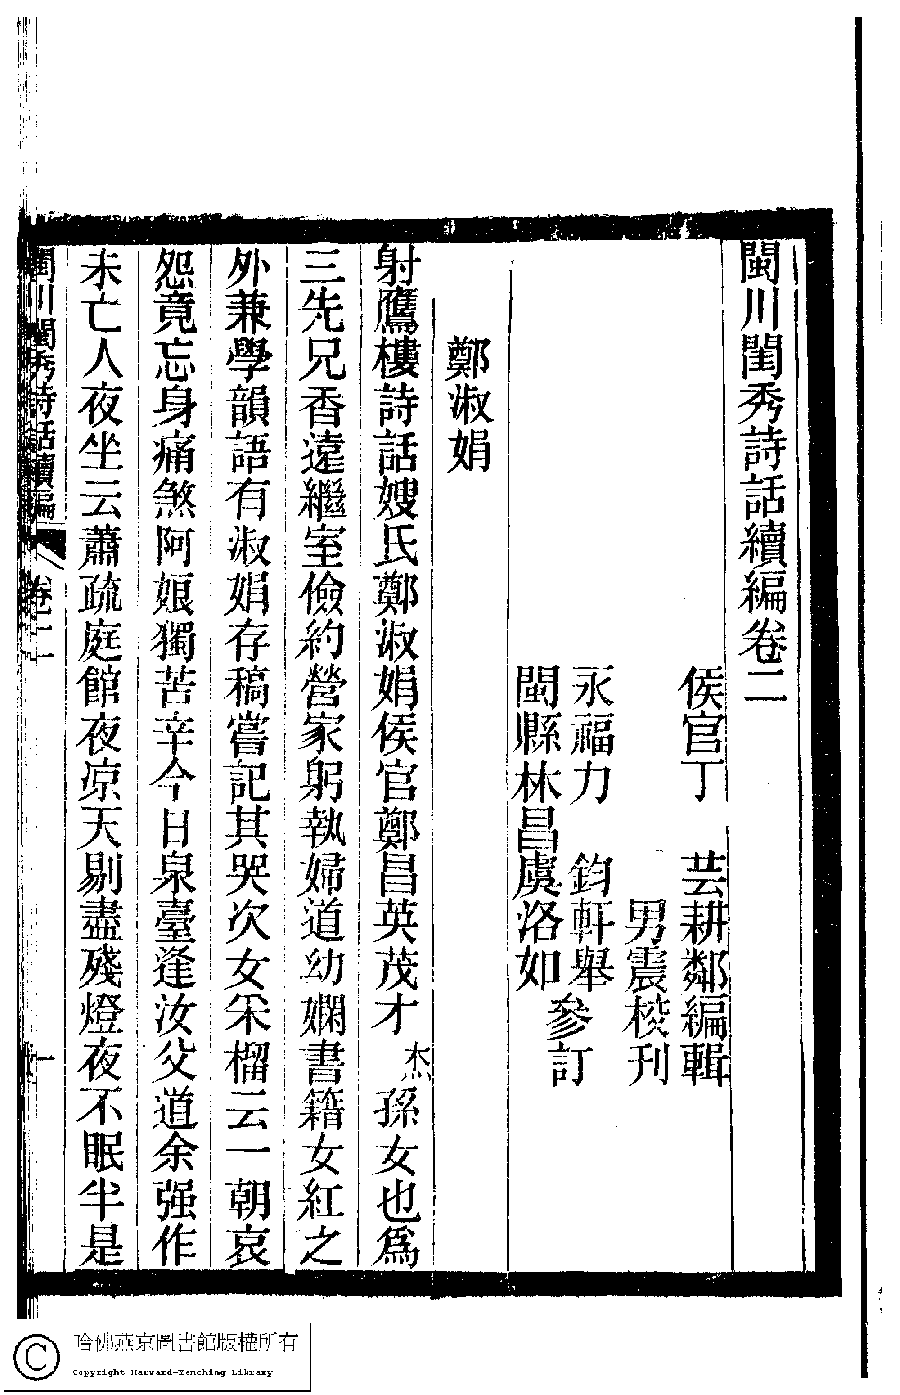 閩川閨秀詩話續編卷二
侯官丁 芸耕鄰編輯
男震校刊
永福力 鈞軒舉
參訂
閩縣林昌虞洛如
鄭淑娟
射鷹樓詩話嫂氏鄭淑娟侯官鄭昌英茂才杰孫女也爲
三先兄香遠繼室儉約營家躬執婦道幼嫻書籍女紅之
外兼學韻語有淑娟存稿嘗記其哭次女采榴云一朝哀
怨竟忘身痛煞阿娘獨苦辛今日泉臺逢汝父道余强作
未亡人夜坐云蕭疏庭館夜凉天剔盡殘燈夜不眠半是
閩川閨秀詩話續編 卷二 一
哈佛燕京圖書館版權所有
Copyright Harvard-Yenching Library